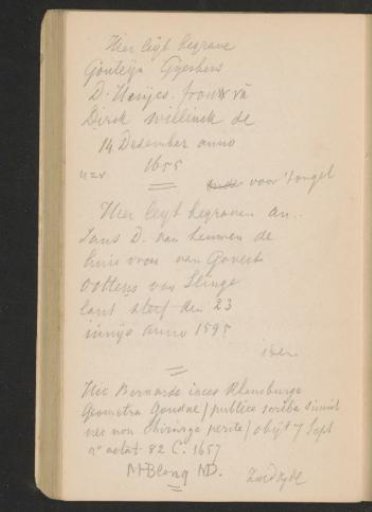 Hier ligt begrave
Gouteja Gysbers
D. Wenjes. frouw vā
Dirck Willinck de
14 Desember anno
1655
voor 't orgel
Hier leyt begraven an..
Jans D. van Leuwen de
huis vrou van Govert
Ottens van Slinge
lant sterf den 23
junijo anno 1595
Hic Bernardo iaces Klansburge
Geometra Goudae / publice scriba simul
nec non chirurge perite / obijt 7 Sept
aº aetat 82 C. 1657
M Blenq MD.
Zuidzyde